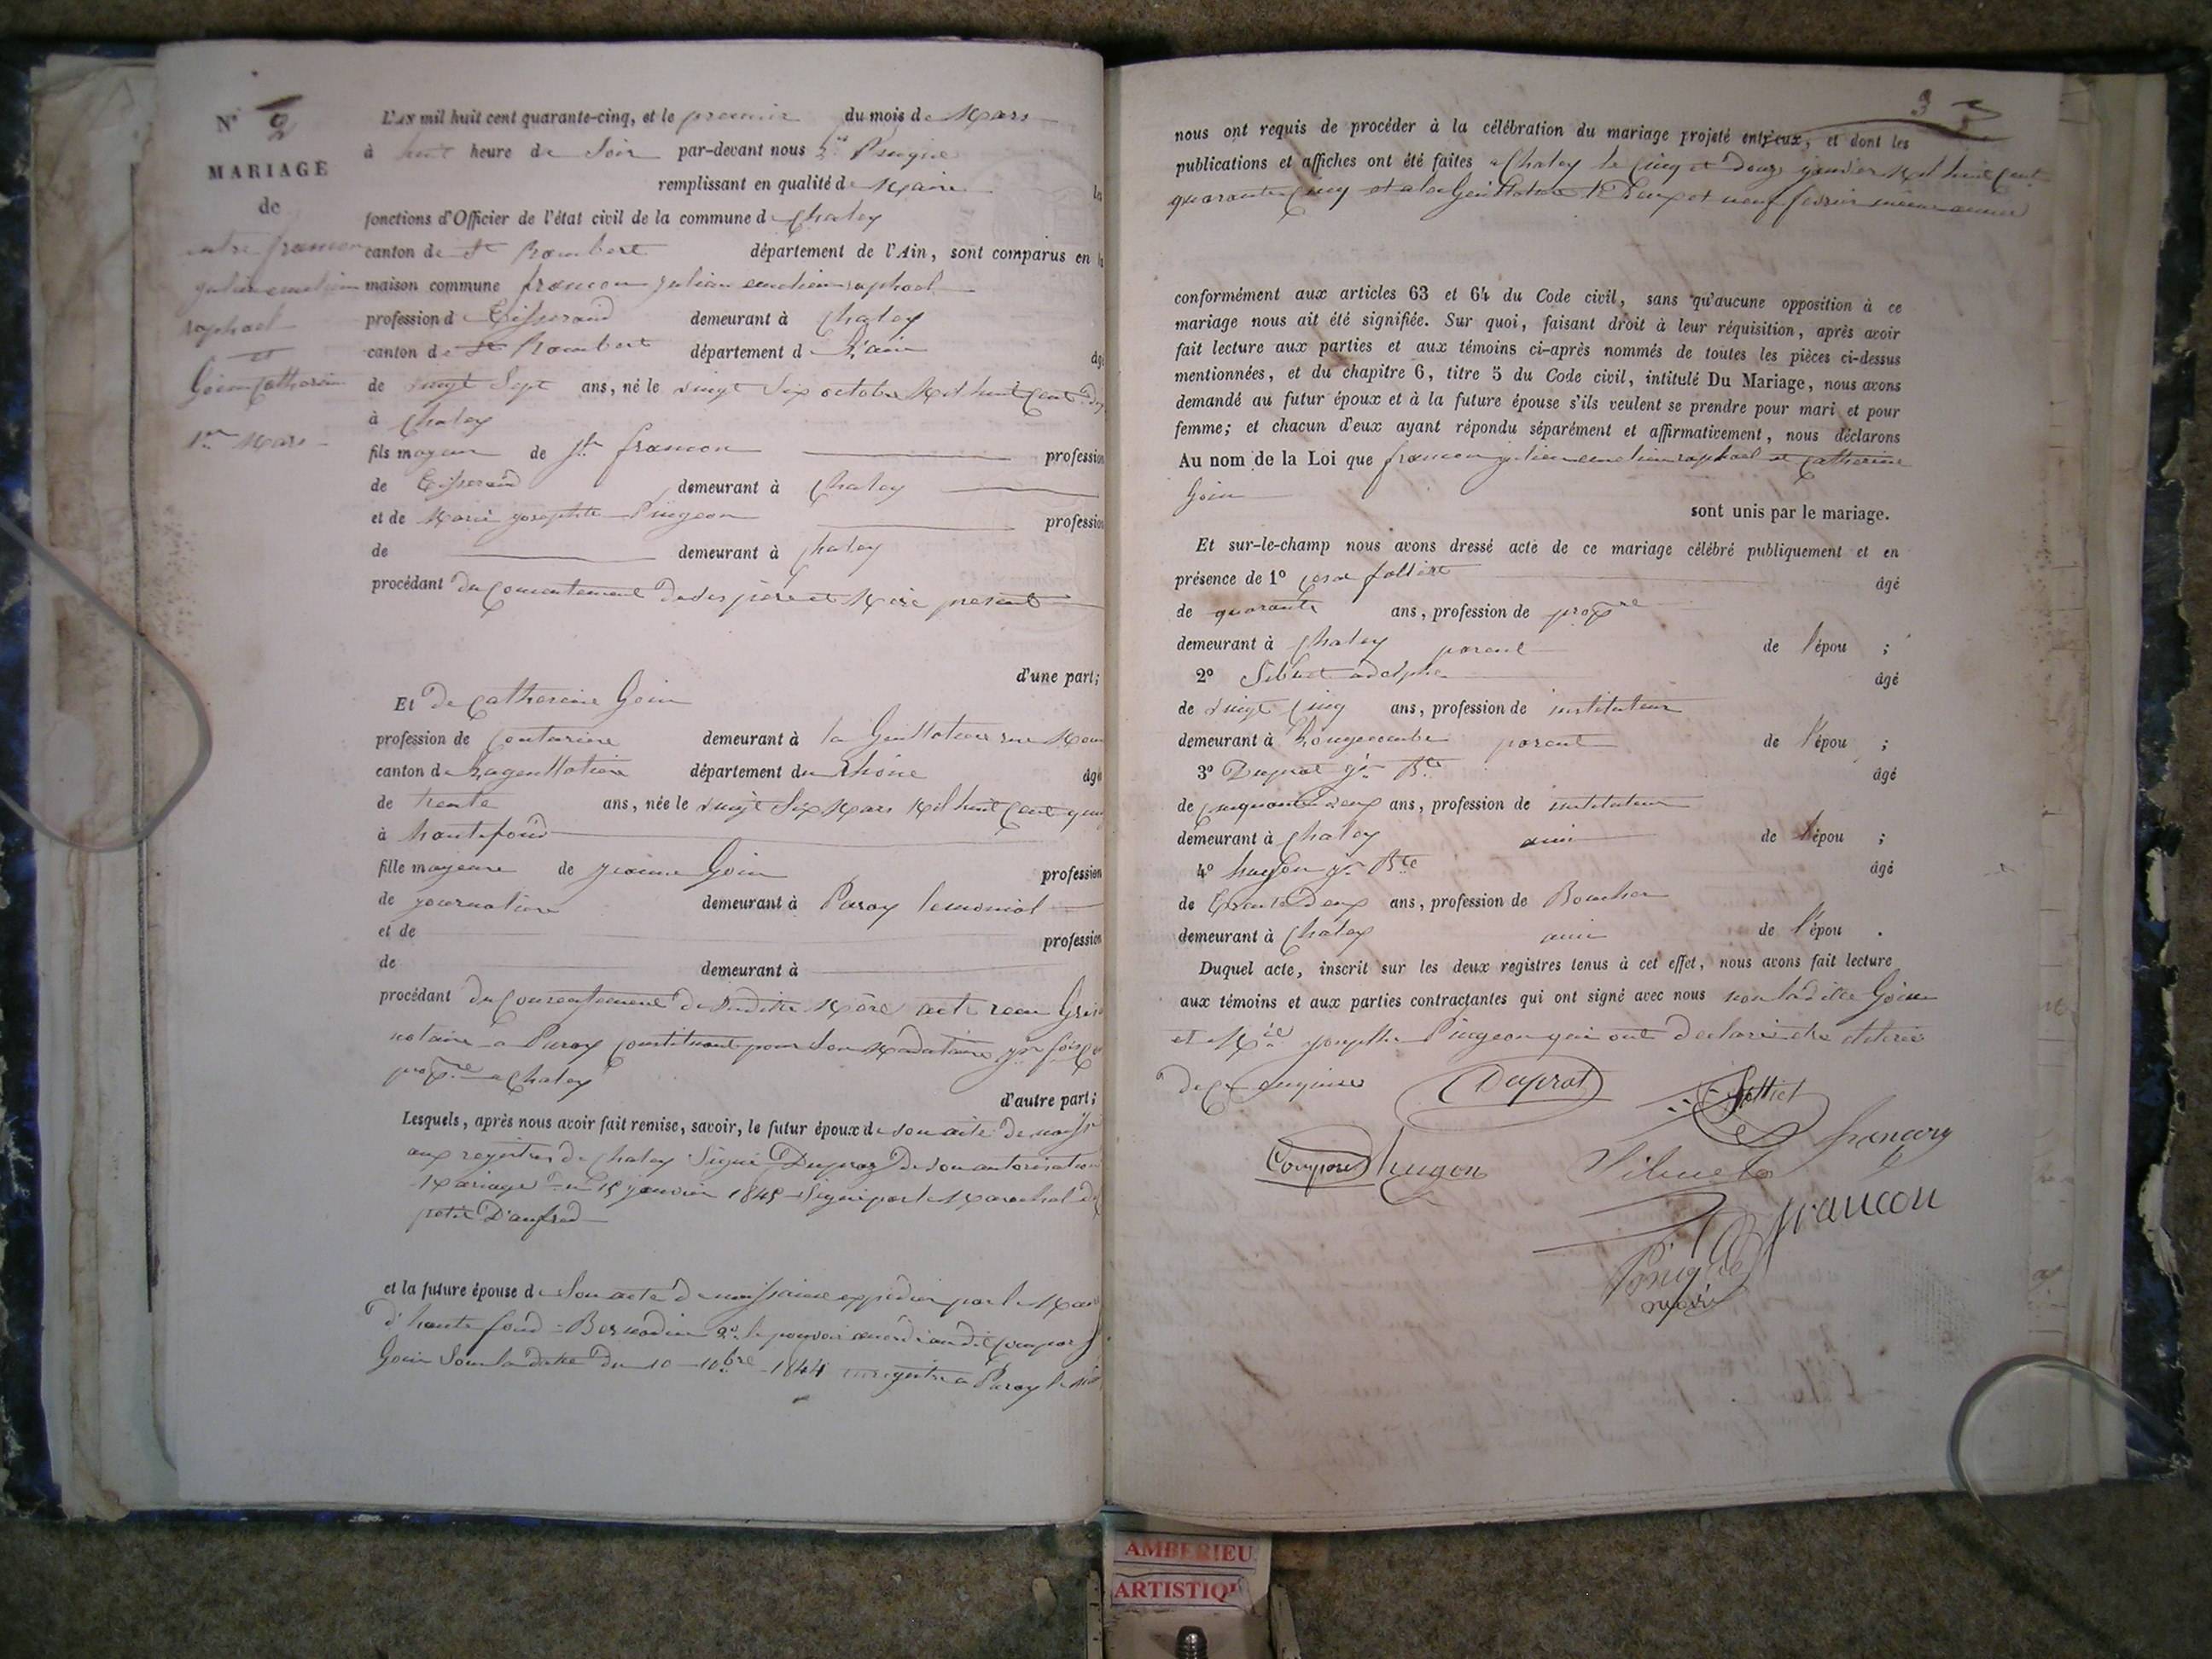 N° 2
MARIAGE
de
entre francon
julien emelien
raphael
et
Goin Catherine
1er Mars
L'AN mil huit cent quarante-cinq, et le premier du mois de Mars
à huit heure du Soir par-devant nous Pingue
remplissant en qualité de Maire les
fonctions d'Officier de l'état civil de la commune de Chaley
canton de St Rambert département de l'Ain, sont comparus en la
maison commune francon julien emelien raphael
profession de Tisserand demeurant à Chaley
canton de St Rambert département de L'ain âgé
de vingt Sept ans, né le vingt Six octobre Mil huit Cent dix
à Chaley
fils mayeur de jh francon profession
de Tisserand demeurant à Chaley
et de Marie josephte Pingeon profession
de demeurant à Chaley
procédant du Consentement de ses père et Mère present
d'une part;
Et de Catherine Goin
profession de Couturiere demeurant à la Guillotiere rue
canton de Laguillotiere département du Rhône âgée
de trente ans, née le vingt Six Mars Mil huit Cent
à hautefond
fille mayeure de jeanne Goin profession
de journaliere demeurant à Paray lemonial
et de profession
de demeurant à
procédant du Consentement de Sudite Mère acte recu
notaire a Paray Constituant pour Son Madataire
propre a Chaley
d'autre part;
Lesquels, après nous avoir fait remise, savoir, le futur époux de son acte de
aux registres de Chaley Signé Dupraz de son autorisation
Mariage du 15 janvier 1845 Signé par le Marechal de
petit D'aufred
et la future épouse de Son acte de naissance expedier par le Maire
d'hautefond Bernadin 2° le pouvoir
Goin Sous la date du 10 10bre 1844 enregistre a Paray le
3
nous ont requis de procéder à la célébration du mariage projeté entr'eux, et dont les
publications et affiches ont été faites a Chaley le Cinq et Douze janvier Mil huit Cent
quarante Cinq et a la Guillotiere le Deux et neuf fevrier même année
conformément aux articles 63 et 64 du Code civil, sans qu'aucune opposition à ce
mariage nous ait été signifiée. Sur quoi, faisant droit à leur réquisition, après avoir
fait lecture aux parties et aux témoins ci-après nommés de toutes les pièces ci-dessus
mentionnées, et du chapitre 6, titre 5 du Code civil, intitulé Du Mariage, nous avons
demandé au futur époux et à la future épouse s'ils veulent se prendre pour mari et pour
femme; et chacun d'eux ayant répondu séparément et affirmativement, nous déclarons
Au nom de la Loi que francon julien emelien raphael et Catherine
Goin
sont unis par le mariage.
Et sur-le-champ nous avons dressé acte de ce mariage célébré publiquement et en
présence de 1° follict âgé
de quarante ans, profession de propre
demeurant à Chaley parent de l'épou ;
2° Sibuet adolphe âgé
de vingt Cinq ans, profession de instituteur
demeurant à Lougecombe parent de l'épou ;
3° Duprat jn Bte âgé
de Cinquante deux ans, profession de instituteur
demeurant à Chaley ami de l'épou ;
4° hugon jn Bte âgé
de Trente Deux ans, profession de Boucher
demeurant à Chaley ami de l'épou .
Duquel acte, inscrit sur les deux registres tenus à cet effet, nous avons fait lecture
aux témoins et aux parties contractantes qui ont signé avec nous non ladite Goin
et Mie josephte Pingeon qui ont declaré être iliterée
de Ce enquise Duprat
follict
francony
hugon
Sibuet
francon
AMBERIEU
ARTISTIQU